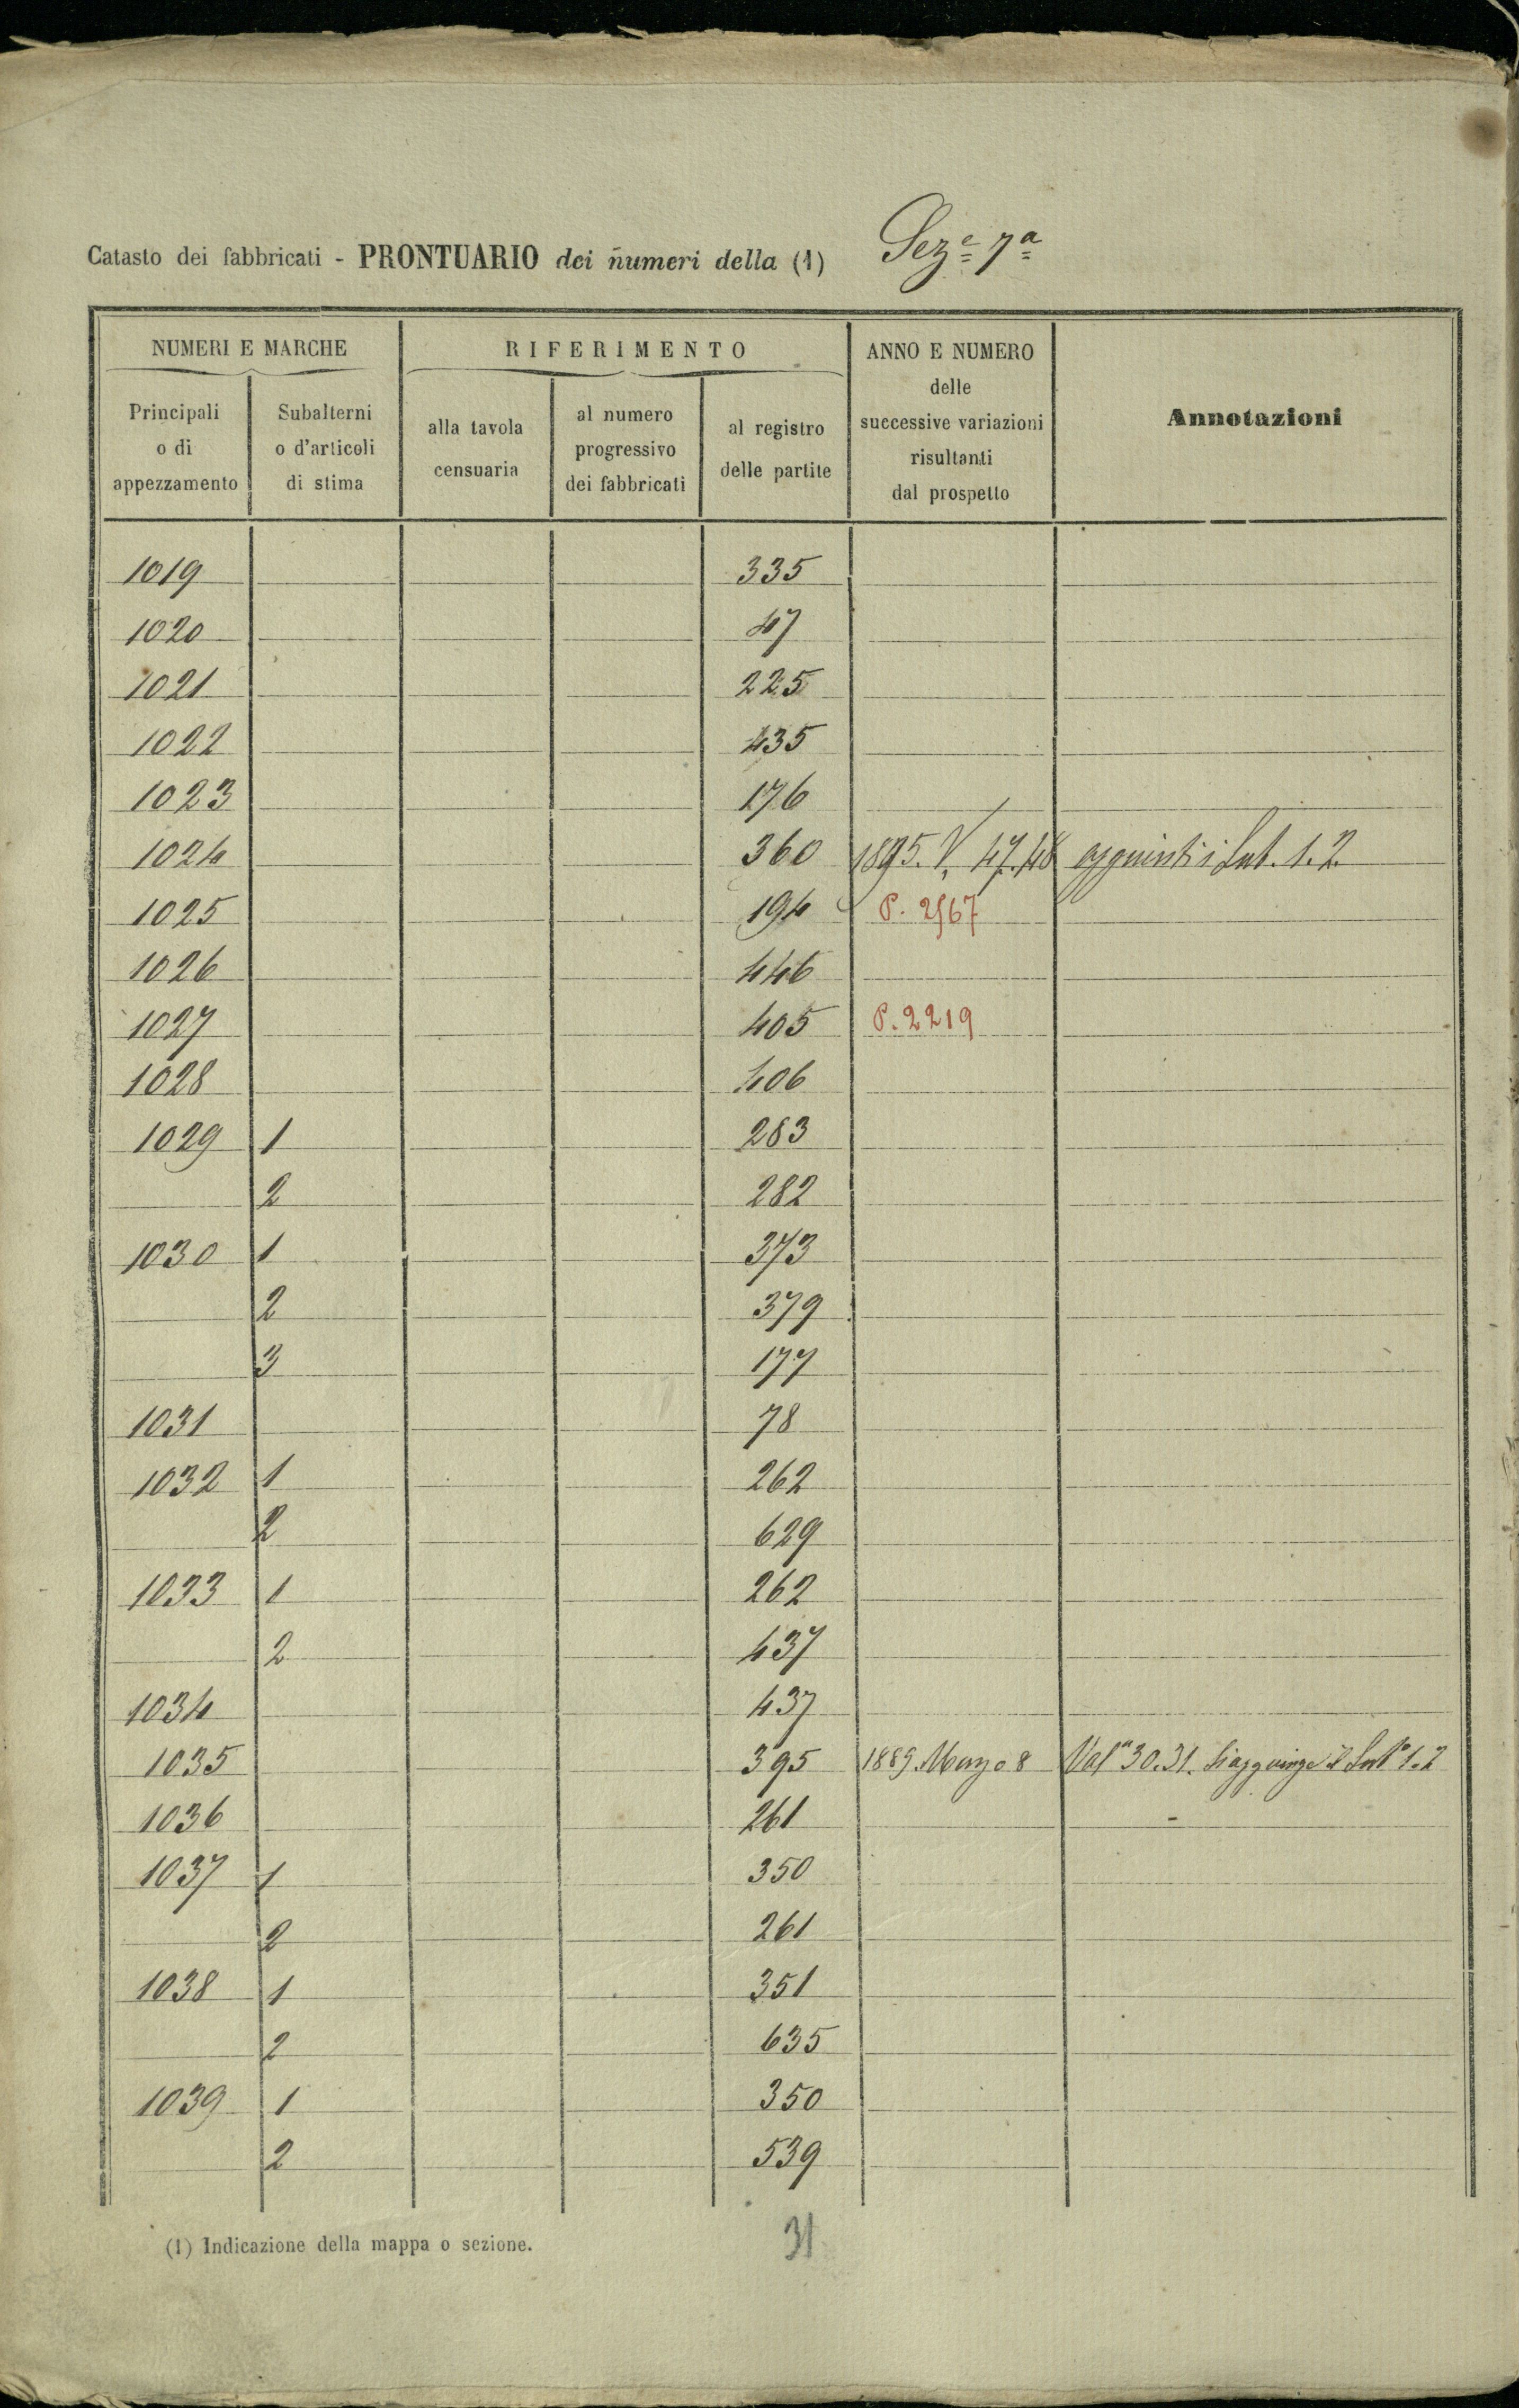 Catasto dei fabbricati - PRONTUARIO dei numeri della (1) Seze 7a
NUMERI E MARCHE
Principali o di appezzamento
Subalterni o d'articoli di stima
RIFERIMENTO
alla tavola censuaria
al numero progressivo dei fabbricati
al registro delle partite
ANNO E NUMERO delle successive variazioni risultanti dal prospetto
Annotazioni
1019 335
1020 47
1021 225
1022 435
1023 176
1024 360 1895. V. 47.48 aggiunti i Sub. 1. 2.
1025 194 P. 2567
1026 446
1027 405 P. 2219
1028 406
1029 1 283
2 282
1030 1 373
2 379
3 177
1031 78
1032 1 262
2 629
1033 1 262
2 437
1034 437
1035 395 1889. Marzo 8 30.31. Si aggiunge il Sub 1. 2
1036 261
1037 1 350
2 261
1038 1 351
2 635
1039 1 350
2 539
(1) Indicazione della mappa o sezione.
31